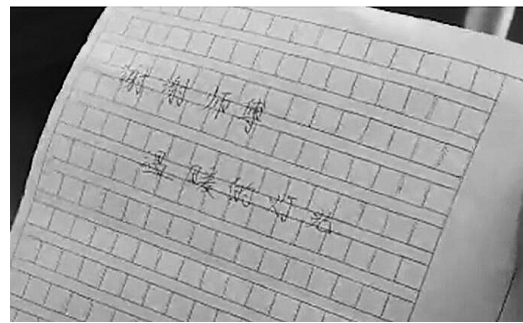 谢谢师傅
温暖的灯光